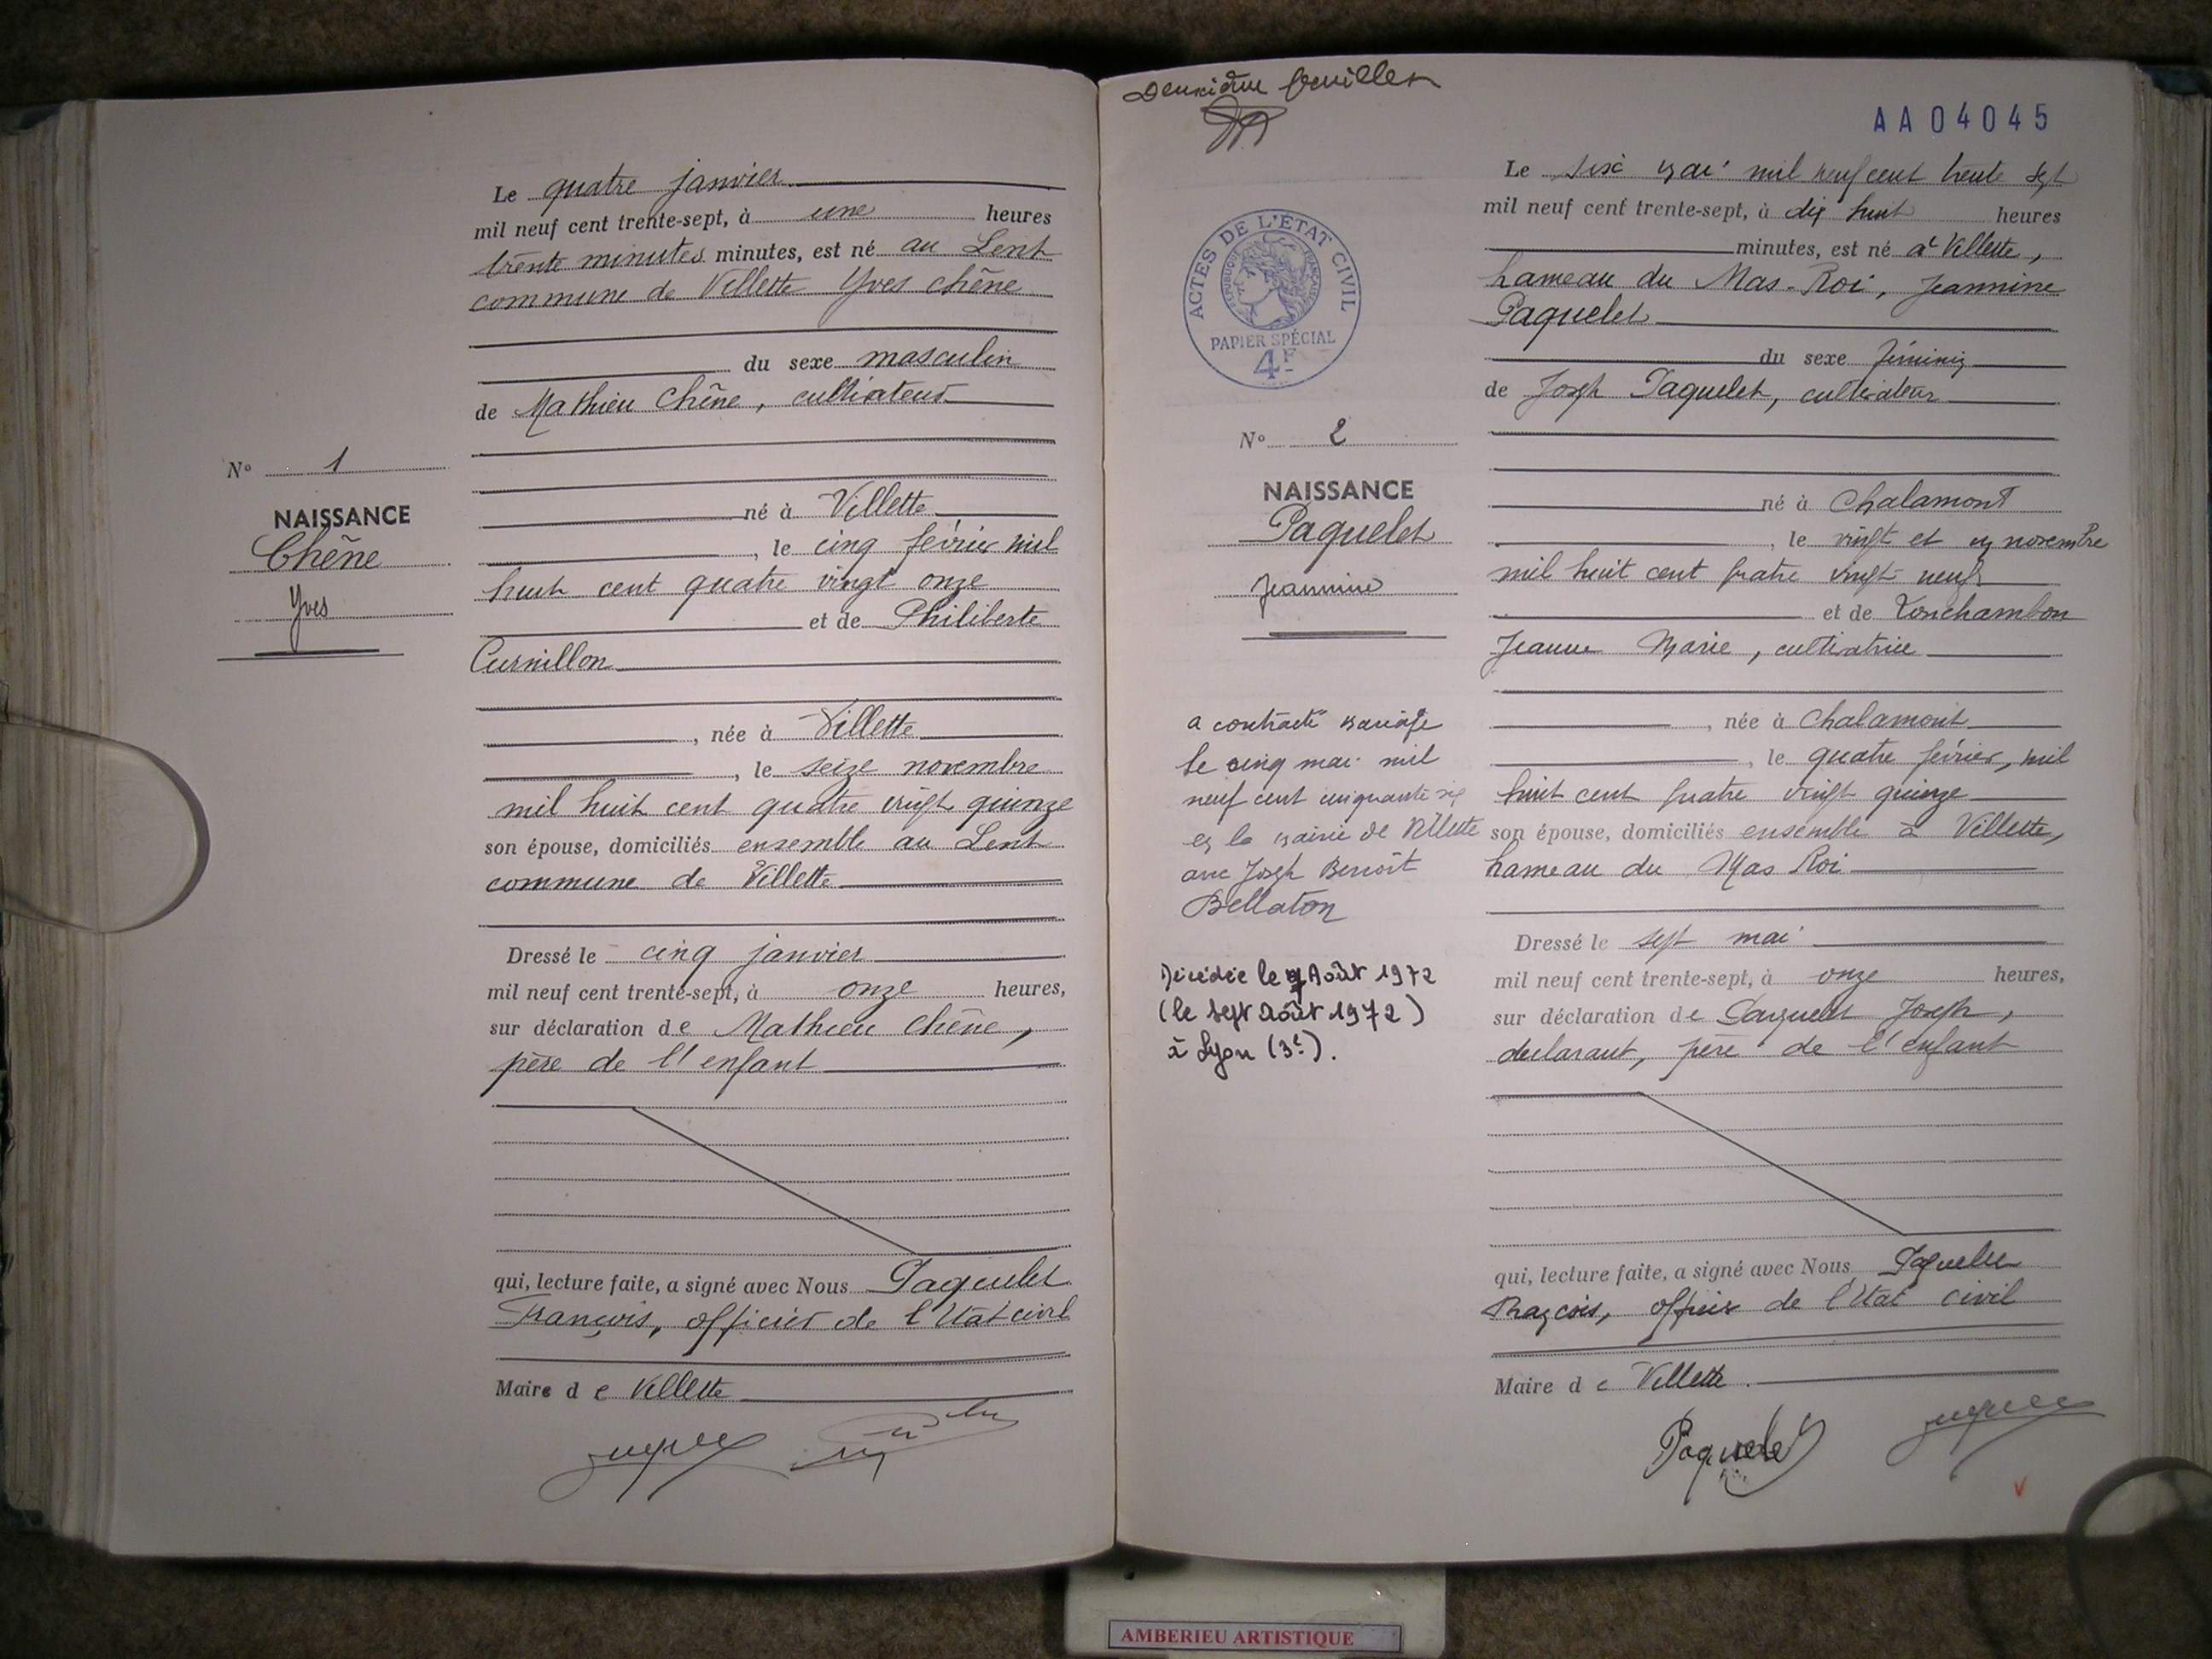 Le quatre janvier
mil neuf cent trente-sept, à une heures
trente minutes minutes, est né au Lent
commune de Villette Yves Chêne
du sexe masculin
de Mathieu Chêne, cultivateur
N° 1
NAISSANCE
Chêne
Yves
né à Villette
, le cinq février mil
huit cent quatre vingt onze
et de Philiberte
Curnillon
, née à Villette
, le seize novembre
mil huit cent quatre vingt quinze
son épouse, domiciliés ensemble au Lent
commune de Villette
Dressé le cinq janvier
mil neuf cent trente-sept, à onze heures,
sur déclaration de Mathieu Chêne,
père de l'enfant
qui, lecture faite, a signé avec Nous Paquelet
François, officier de l'Etat civil
Maire de Villette
Deuxième feuillet
AA04045
ACTES DE L'ÉTAT CIVIL
RÉPUBLIQUE FRANÇAISE
PAPIER SPÉCIAL
4F
N° 2
NAISSANCE
Paquelet
Jeannine
a contracté mariage
le cinq mai mil
neuf cent cinquante six
en la mairie de Villette
avec Joseph Benoît
Bellaton
Décédée le 7 Août 1972
(le sept Août 1972)
à Lyon (3e).
Le six mai mil neuf cent trente sept
mil neuf cent trente-sept, à dix huit heures
minutes, est né à Villette,
hameau du Mas-Roi, Jeannine
Paquelet
du sexe féminin
de Joseph Paquelet, cultivateur
né à Chalamont
, le vingt et un novembre
mil huit cent quatre vingt neuf
et de Tonchambon
Jeanne Marie, cultivatrice
, née à Chalamont
, le quatre février, mil
huit cent quatre vingt quinze
son épouse, domiciliés ensemble à Villette,
hameau du Mas Roi
Dressé le sept mai
mil neuf cent trente-sept, à onze heures,
sur déclaration de Paquelet Joseph,
déclarant, père de l'enfant
qui, lecture faite, a signé avec Nous Paquelet
François, officier de l'Etat civil
Maire de Villette
Paquelet
AMBERIEU ARTISTIQUE